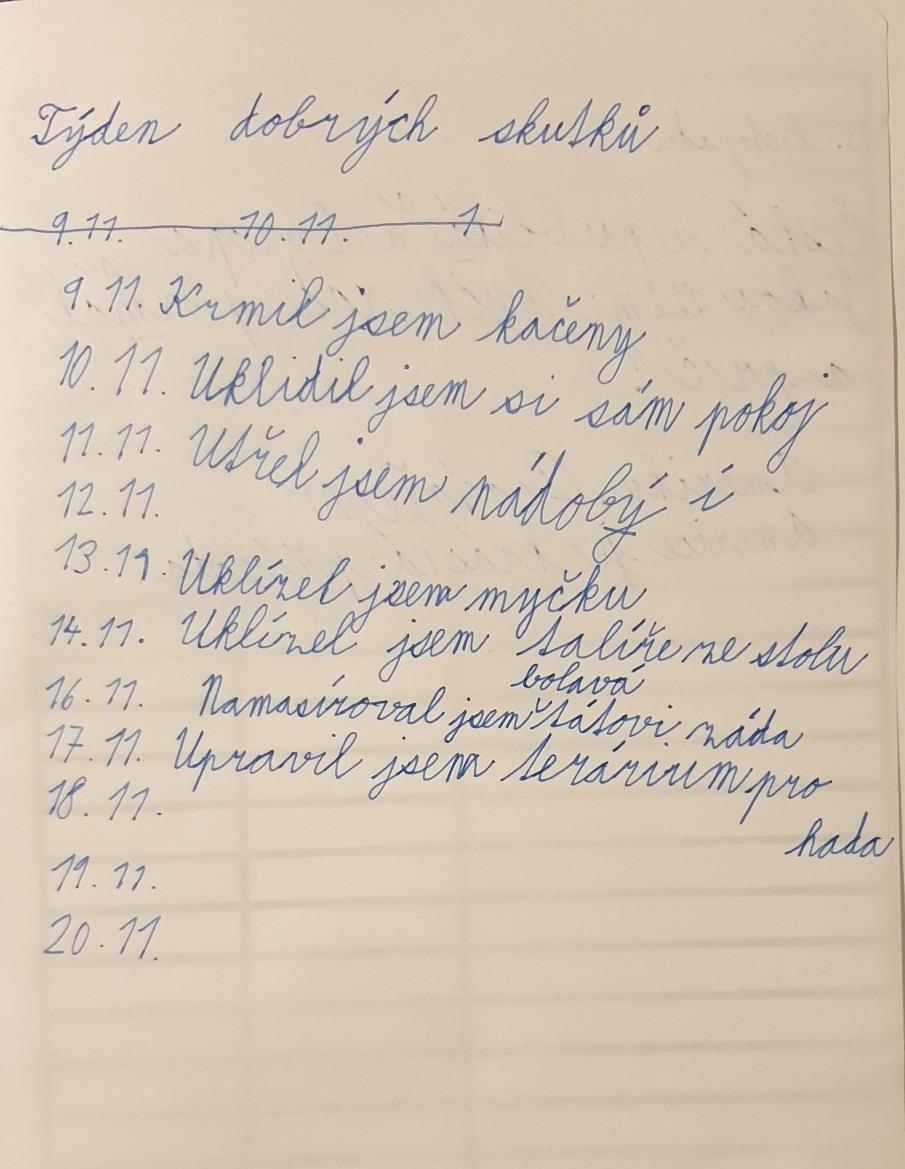 Týden dobrých skutků
9.11. 10.11. 1.
9.11. Krmil jsem kačeny
10.11. Uklidil jsem si sám pokoj
11.11. Utřel jsem nádobý i
12.11.
13.11. Uklízel jsem myčku
14.11. Uklízel jsem talíře ze stolu
bolavá
16.11. Namasíroval jsem tátovi záda
17.11. Upravil jsem terárium pro
18.11.
hada
19.11.
20.11.